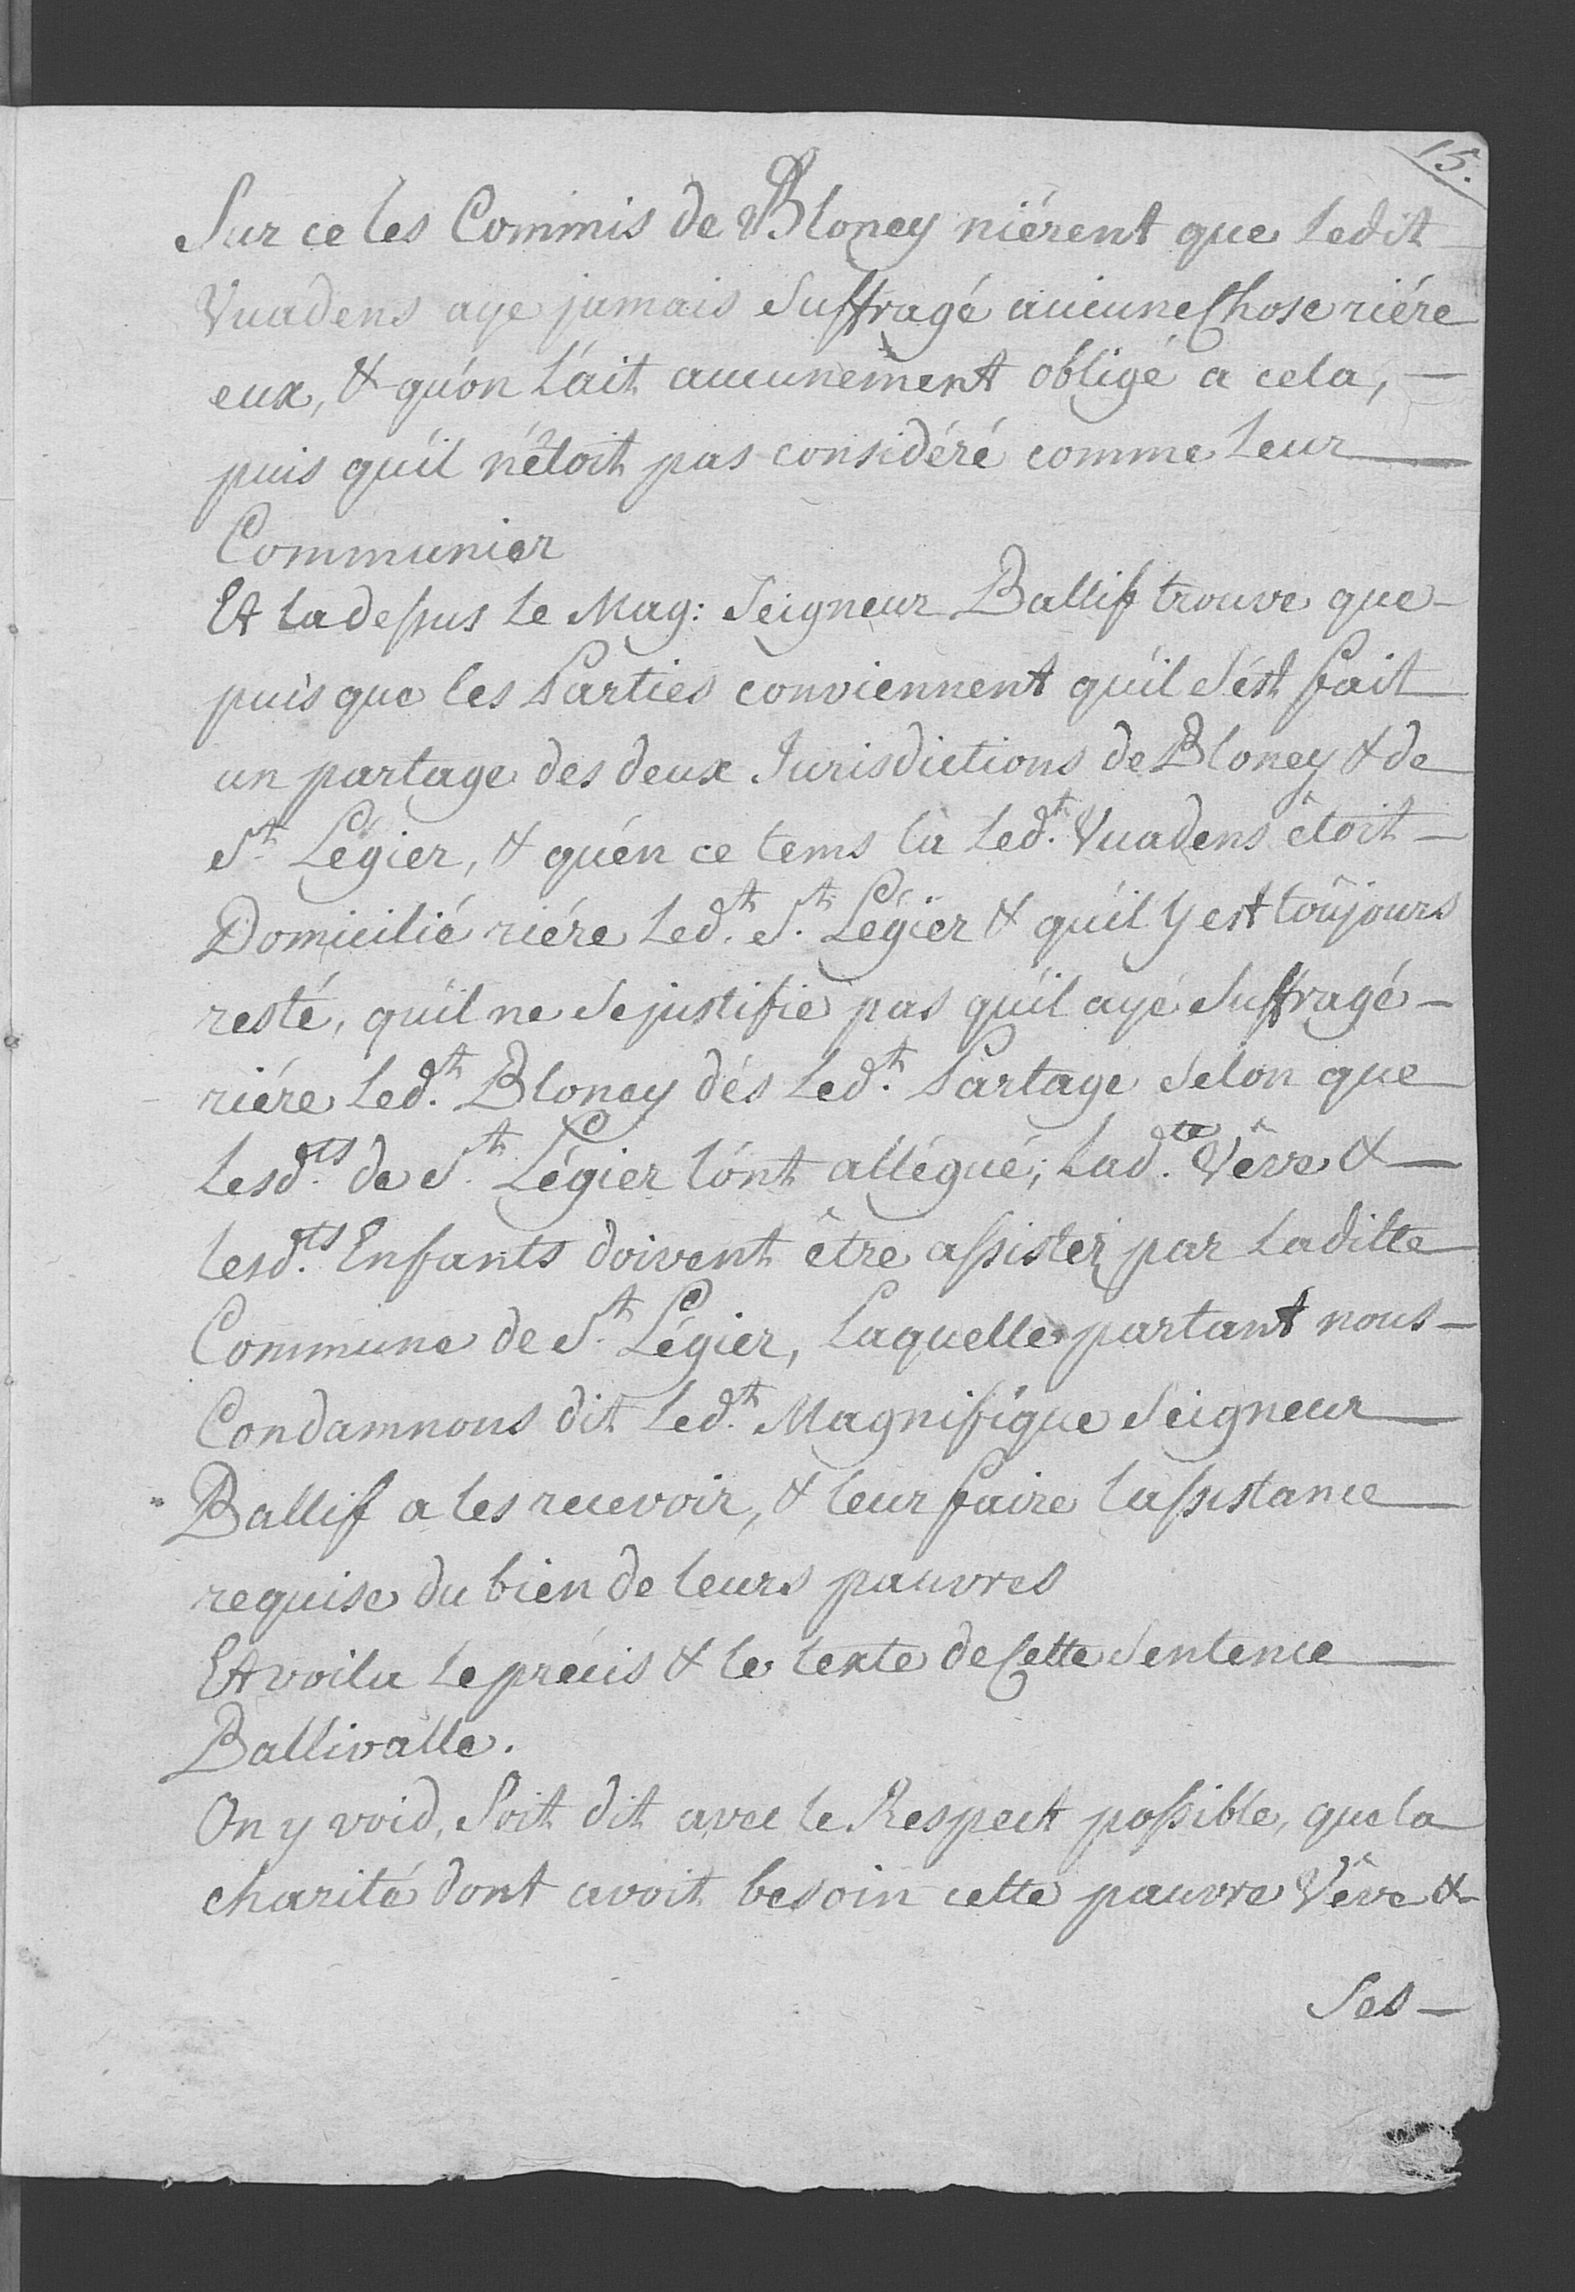 15.
Sur ce les Commis de Bloney niérent que Ledit
Vuadens aye jamais Suffragé aucune Chose riére
eux, & qu'on L'ait aucunement obligé a cela, —
puis qu'il n'étoit pas considéré comme Leur —
Communier
Et La dessus Le Mag: Seigneur Ballif trouve que —
puisque les Parties conviennent qu'il S'est fait
un partage des deux Jurisdictions de Bloney & de
St. Légier, & qu'en ce tems là Ledt. Vuadens êtoit —
Domicilié riére Ledt. St. Légier & qu'il y est toûjours
resté, qu'il ne Se justifie pas qu'il aye Suffragé —
riére Ledt. Bloney dés Ledt. Partage Selon que
Lesdts. de St. Légier l'ont allégué; Ladte. Vêve & —
lesdts. Enfants doivent être assistez par Laditte
Commune de St. Légier, Laquelle partant nous —
Condamnons dit Ledt. Magnifique Seigneur —
Ballif a les recevoir, & leur faire l'assistance —
requise du bien de leurs pauvres
Et voila Le précis & le texte de Cette Sentence —
Ballivalle.
On y void, Soit dit avec le Respect possible, que la
charité dont avoit besoin cette pauvre Vêve &
Ses —